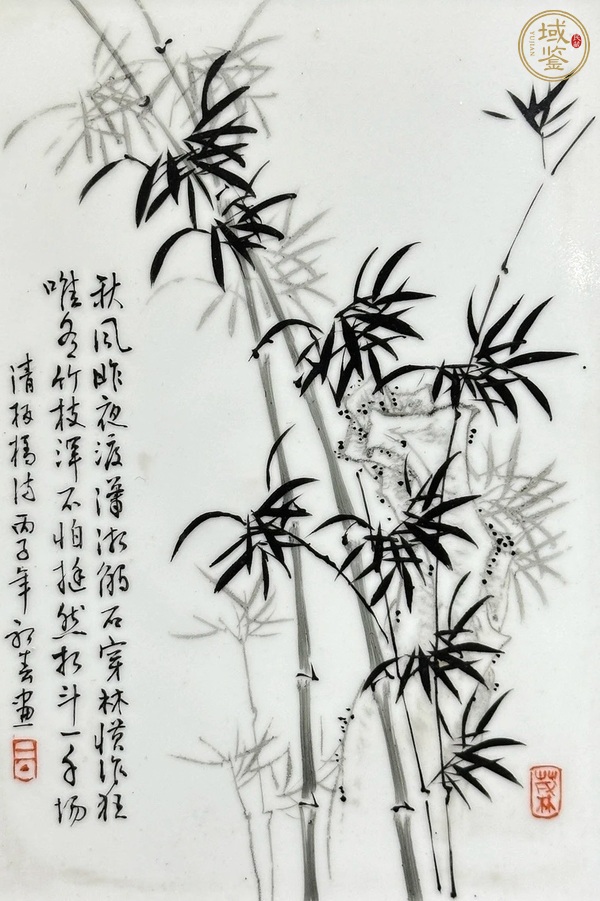 域鉴
YUJIAN
秋风昨夜渡潇湘触石穿林惯作狂
唯有竹枝浑不怕挺然相斗一千场
清板橋诗丙子年初春畫
茂林